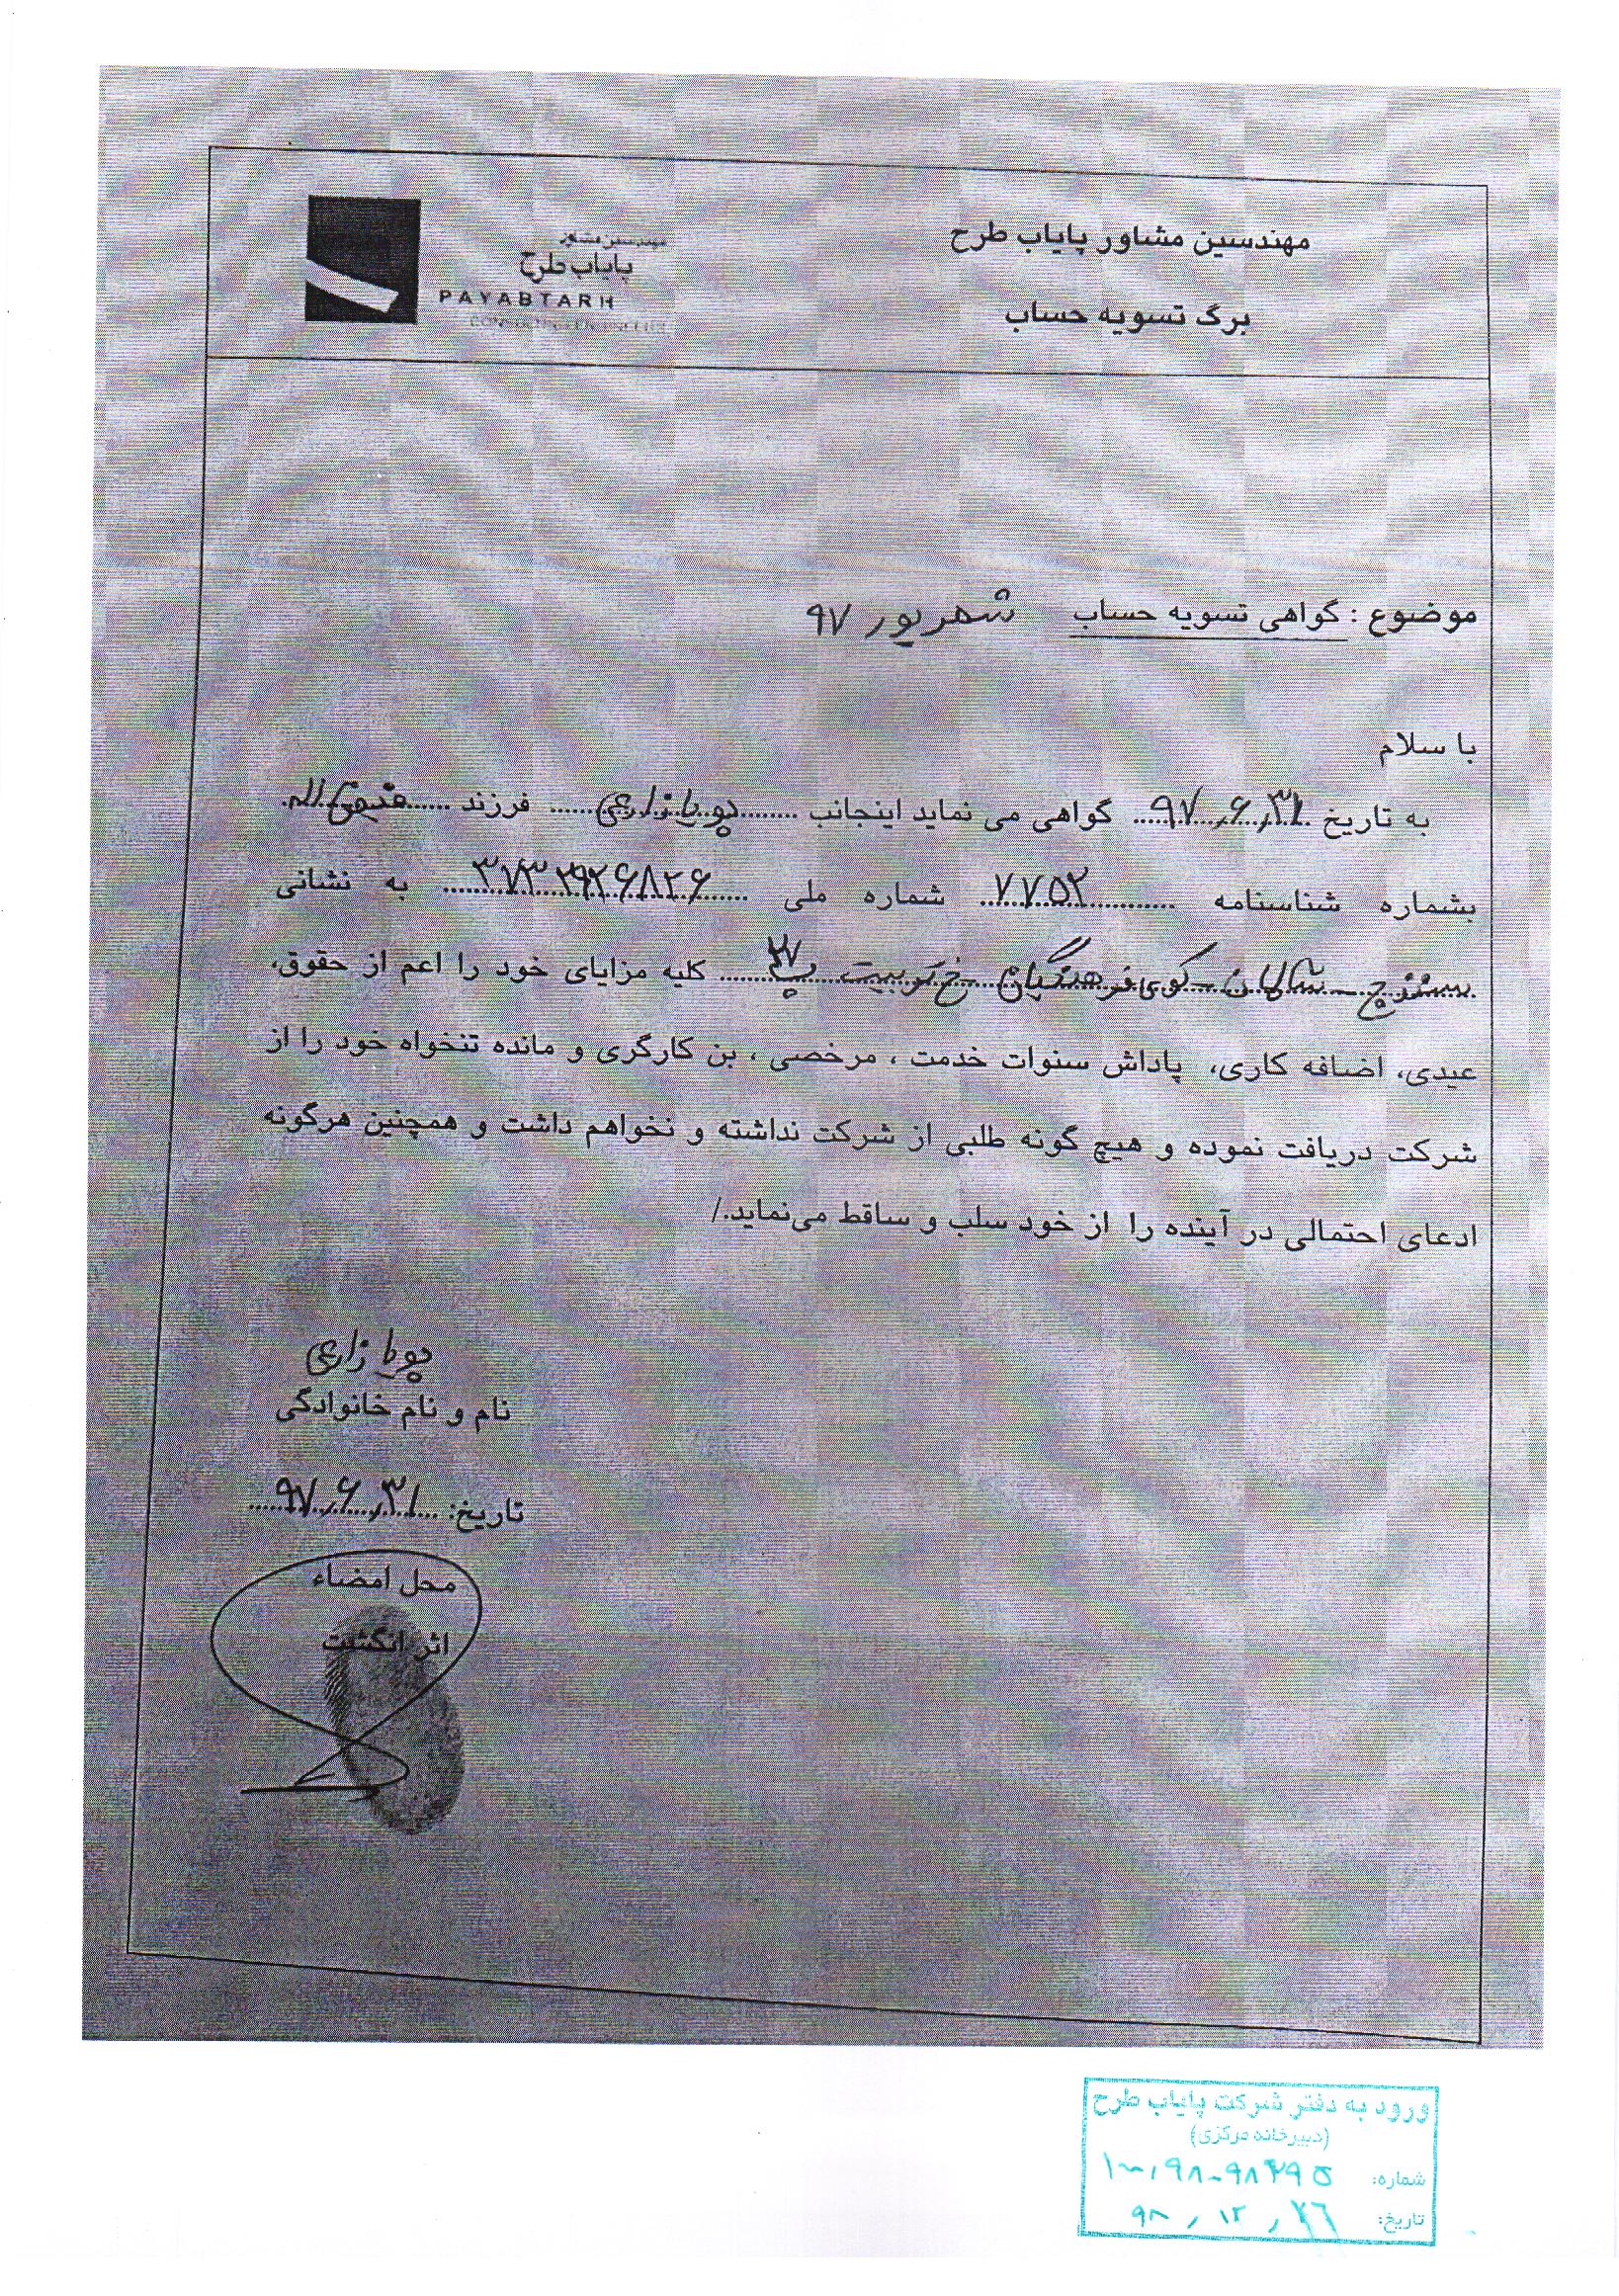 مهندسین مشاور پایاب طرح
برگ تسویه حساب
مهندسین مشاور
پایاب طرح
PAYABTARH
موضوع : گواهی تسویه حساب شهریور ۹۷
با سلام
به تاریخ ۹۷٫۶٫۳۱ گواهی می نماید اینجانب پوریا زارعی فرزند
بشماره شناسنامه ۷۷۵۲ شماره ملی ۳۷۳۲۹۲۶۸۲۶ به نشانی
سنندج - شالمان - کوی فرهنگیان خ تربیت پ ۲۷ کلیه مزایای خود را اعم از حقوق،
عیدی، اضافه کاری، پاداش سنوات خدمت ، مرخصی ، بن کارگری و مانده تنخواه خود را از
شرکت دریافت نموده و هیچ گونه طلبی از شرکت نداشته و نخواهم داشت و همچنین هرگونه
ادعای احتمالی در آینده را از خود سلب و ساقط می‌نماید./
پوریا زارعی
نام و نام خانوادگی
تاریخ: ۹۷٫۶٫۳۱
محل امضاء
اثر انگشت
ورود به دفتر شرکت پایاب طرح
(دبیرخانه مرکزی)
شماره:
تاریخ: ۹۸٫۱۲٫۲۶